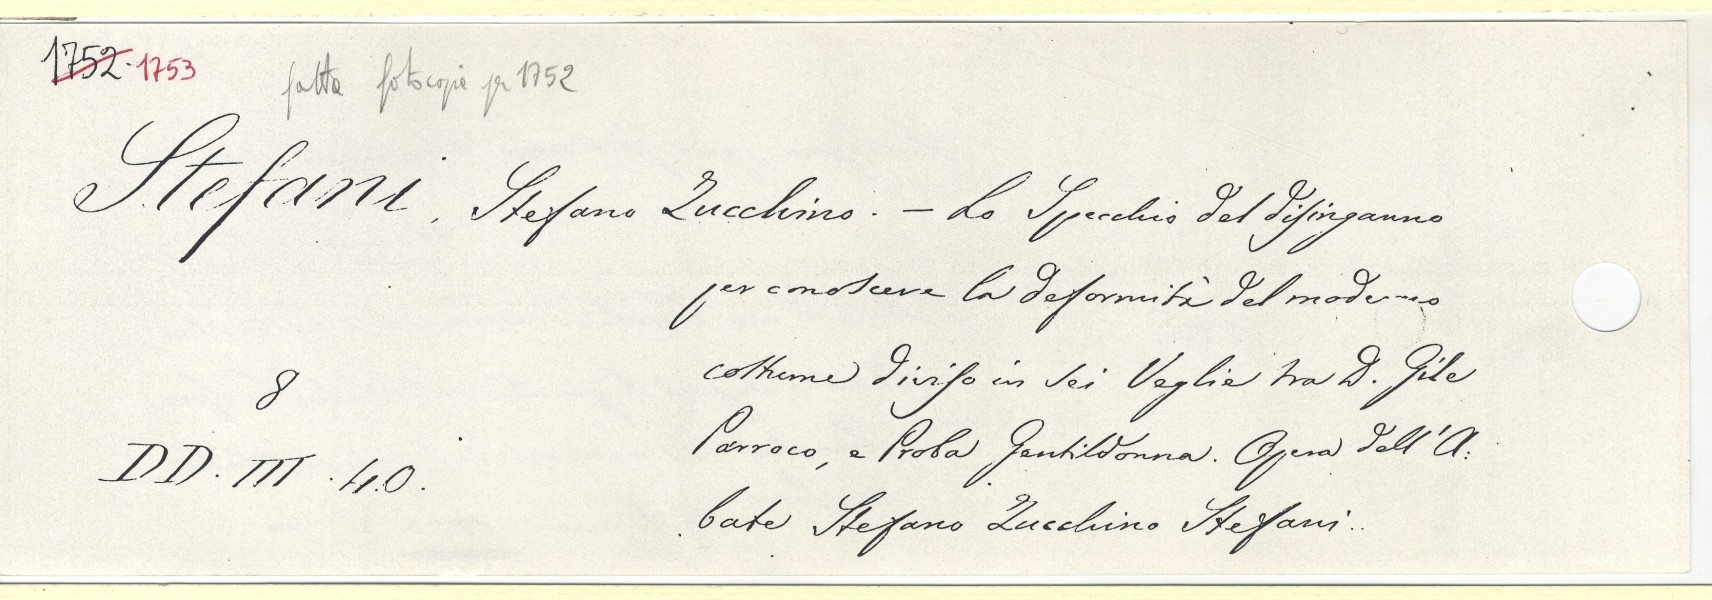 1752. 1753
fatta fotocopia per 1752
Stefani, Stefano Zucchino. - Lo Specchio del disinganno
per conoscere la deformità del moderno
costume diviso in sei Veglie tra D. Gile
Parroco, e Proba Gentildonna. Opera dell'A:
bate Stefano Zucchino Stefani..
8
DD. III. 40.